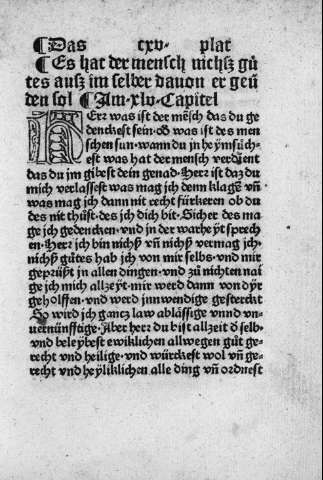 ¶Das cxv· plat
¶Es hat der mensch nichsz gů
tes ausz im selber dauon er geũ
den sol ¶Am·xlv·Capitel
HErr was ist der mẽsch das du ge
denckest sein·ob was ist des men
schen sun·wann du in heymsůch-
est was hat der mensch verdient
das du im gibest dein genad·Herr ist daz du
mich verlassest was mag jch denn klagẽ vñ
was mag jch dann nit recht fürkeren ob du
des nit thůst·des jch dich bit·Sicher des ma
ge jch gedencken·vnd in der warheyt sprech
en·Herr jch bin nichtz vñ nichtz vermag jch·
nichtz gůtes hab jch von mir selbs·vnd mir
gebrüst in allen dingen·vnd zů nichten nai
ge jch mich allzeyt·mir werd dann von dyr
geholffen·vnd werd jnnwendige gesterckt
So wird jch gancz law ablässige vnnd vn-
uernünfftige·Aber herr du bist allzeit ď selb·
vnd beleybest ewiklichen allwegen gůt ge-
recht vnd heilige·vnd würckest wol vñ ge-
recht vnd heyliklichen alle ding vñ ordnest